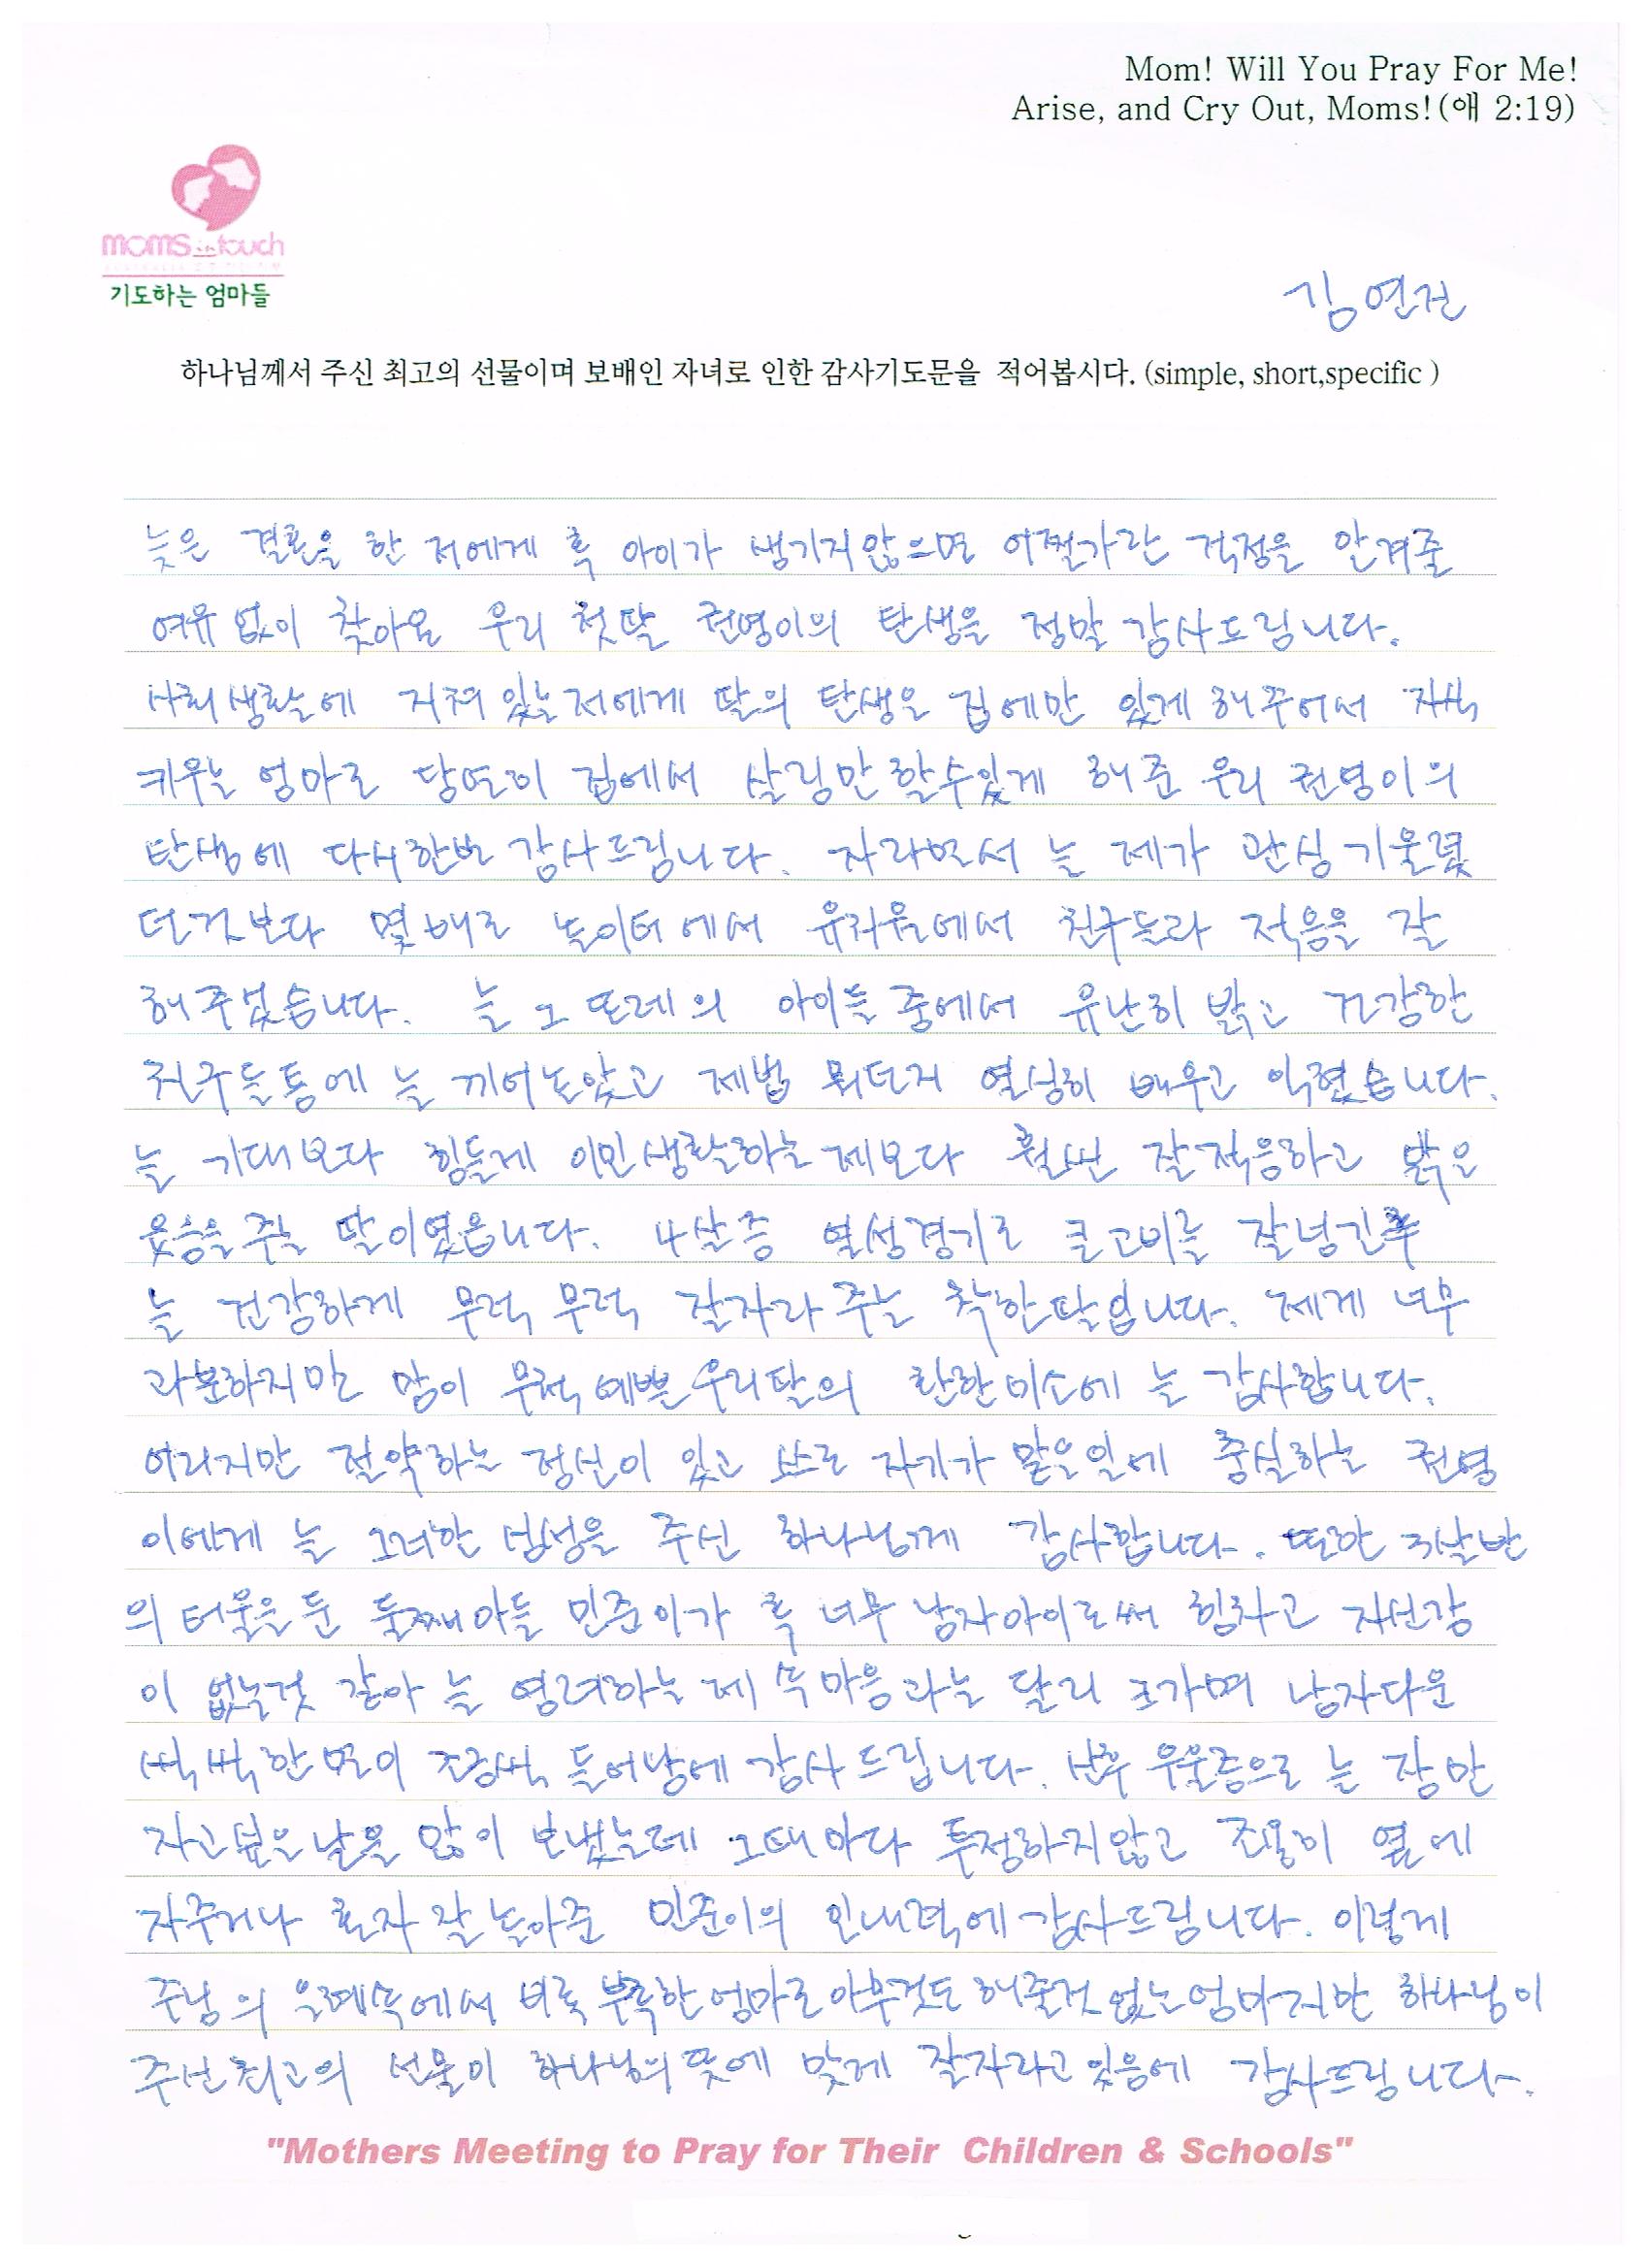 Mom! Will You Pray For Me!
Arise, and Cry Out, Moms!(애 2:19)
moms in touch
기도하는 엄마들
김연진
하나님께서 주신 최고의 선물이며 보배인 자녀로 인한 감사기도문을 적어봅시다. (simple, short,specific )
늦은 결혼을 한 저에게 혹 아이가 생기지않으면 어쩔가란 걱정을 안겨줄
여유 없이 찾아온 우리 첫딸 권영이의 탄생을 정말 감사드립니다.
사회생활에 지쳐 있는 저에게 딸의 탄생은 집에만 있게 해주어서 자식
키우는 엄마로 당연히 집에서 살림만 할수있게 해준 우리 권영이의
탄생에 다시한번 감사드립니다. 자라면서 늘 제가 관심 기울였
던것보다 몇배로 놀이터에서 유치원에서 친구들과 적응을 잘
해주었습니다. 늘 그 또래의 아이들 중에서 유난히 밝고 건강한
친구들틈에 늘 끼어놀았고 제법 뭐던지 열심히 배우고 익혔습니다.
늘 기대보다 힘들게 이민생활하는 제보다 훨씬 잘적응하고 밝은
웃음을주는 딸이였읍니다. 4살증 열성경기로 큰고비를 잘넘긴후
늘 건강하게 무럭 무럭 잘자라 주는 착한딸입니다. 제게 너무
과분하지만 맘이 무척 예쁜 우리딸의 환한미소에 늘 감사합니다.
어리지만 절약하는 정신이 있고 스스로 자기가 맡은일에 충실하는 권영
이에게 늘 그러한 심성을 주신 하나님께 감사합니다. 또한 3살반
의 터울을 둔 둘째아들 민준이가 혹 너무 남자아이로써 힘차고 자신감
이 없는것 같아 늘 염려하는 제 속마음과는 달리 크가며 남자다운
씩씩한 면이 조금씩 늘어남에 감사드립니다. 산후 우울증으로 늘 잠만
자고싶은날을 많이 보냈는데 그때마다 투정하지않고 조용히 옆에
자주거나 혼자 잘 놀아준 민준이의 인내력에 감사드립니다. 이렇게
주님의 은혜속에서 비록 부족한 엄마로 아무것도 해줄것 없는 엄마지만 하나님이
주신 최고의 선물이 하나님의 뜻에 맞게 잘자라고 있음에 감사드립니다.
"Mothers Meeting to Pray for Their Children & Schools"